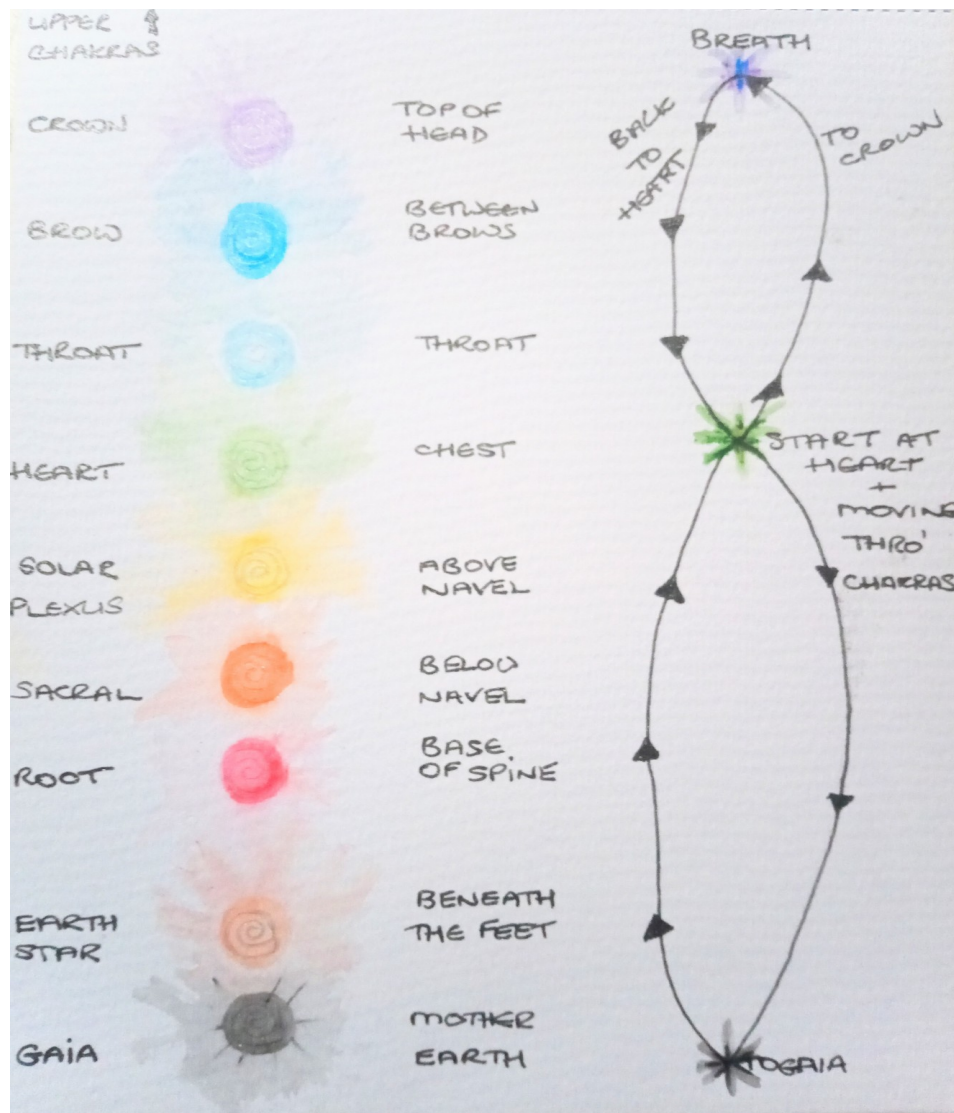 UPPER
CHAKRAS
CROWN
BROW
THROAT
HEART
SOLAR
PLEXUS
SACRAL
ROOT
EARTH
STAR
GAIA
TOP OF
HEAD
BETWEEN
BROWS
THROAT
CHEST
ABOVE
NAVEL
BELOW
NAVEL
BASE
OF SPINE
BENEATH
THE FEET
MOTHER
EARTH
BREATH
BACK
TO
HEART
TO
CROWN
START AT
HEART
+
MOVING
THRO'
CHAKRAS
TO GAIA